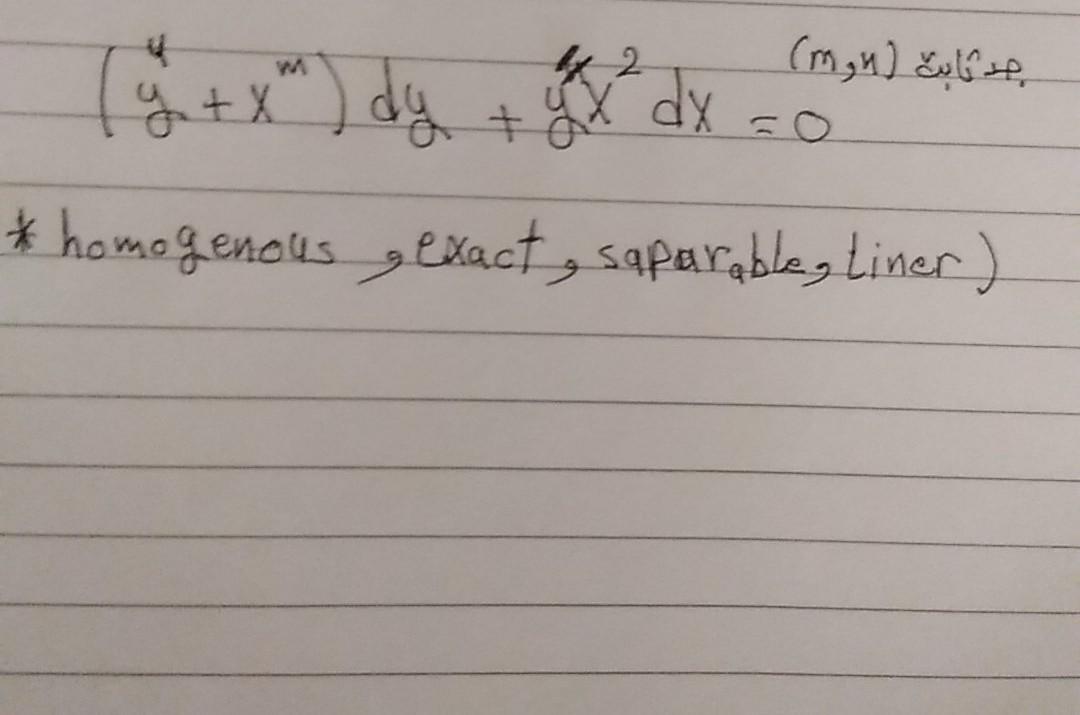 (y⁴ + xᵐ) dy + yx² dx = 0
(m,n) جد ثابت
* homogenous, exact, saparable, Liner)